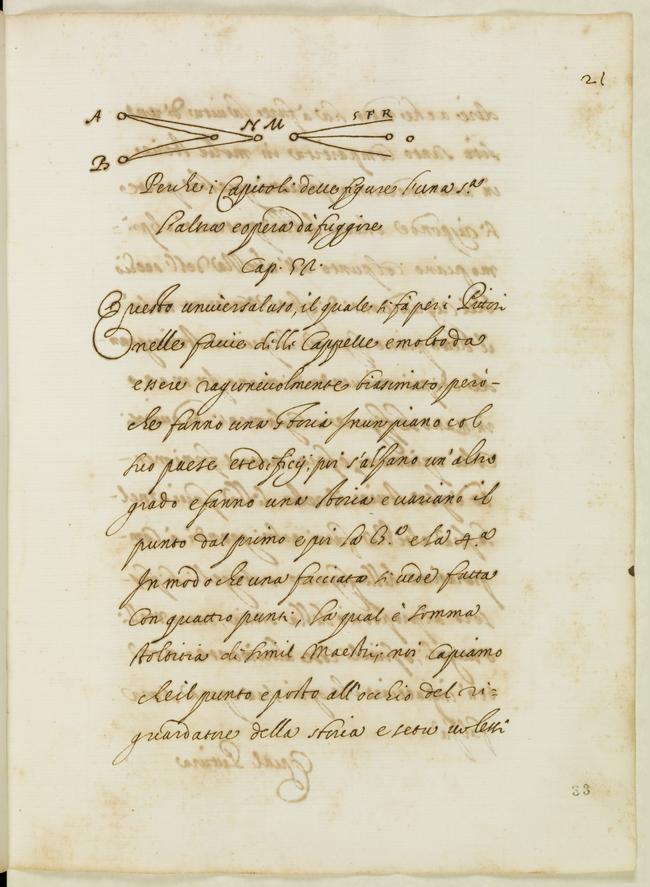 21
A N M S F R
B
Perche i Capitoli delle figure l'una s.ª
l'altra e opera da fuggire
Cap. 52.
Questo universal uso, il quale si fà per i Pittori
nelle faccie delle Cappelle e molto da
essere ragionevolmente biasimato però-
che fanno una storia in un piano col
suo paese et edificij. poi s'alzano un'altro
grado e fanno una storia e variano il
punto dal primo e poi la 3.ª e la 4.ª
In modo che una facciata si vede fatta
con quattro punti, la qual è somma
stoltitia di simil Maestri, noi sapiamo
che il punto e posto all'occhio del ri=
guardatore della storia e se tu volessi
33